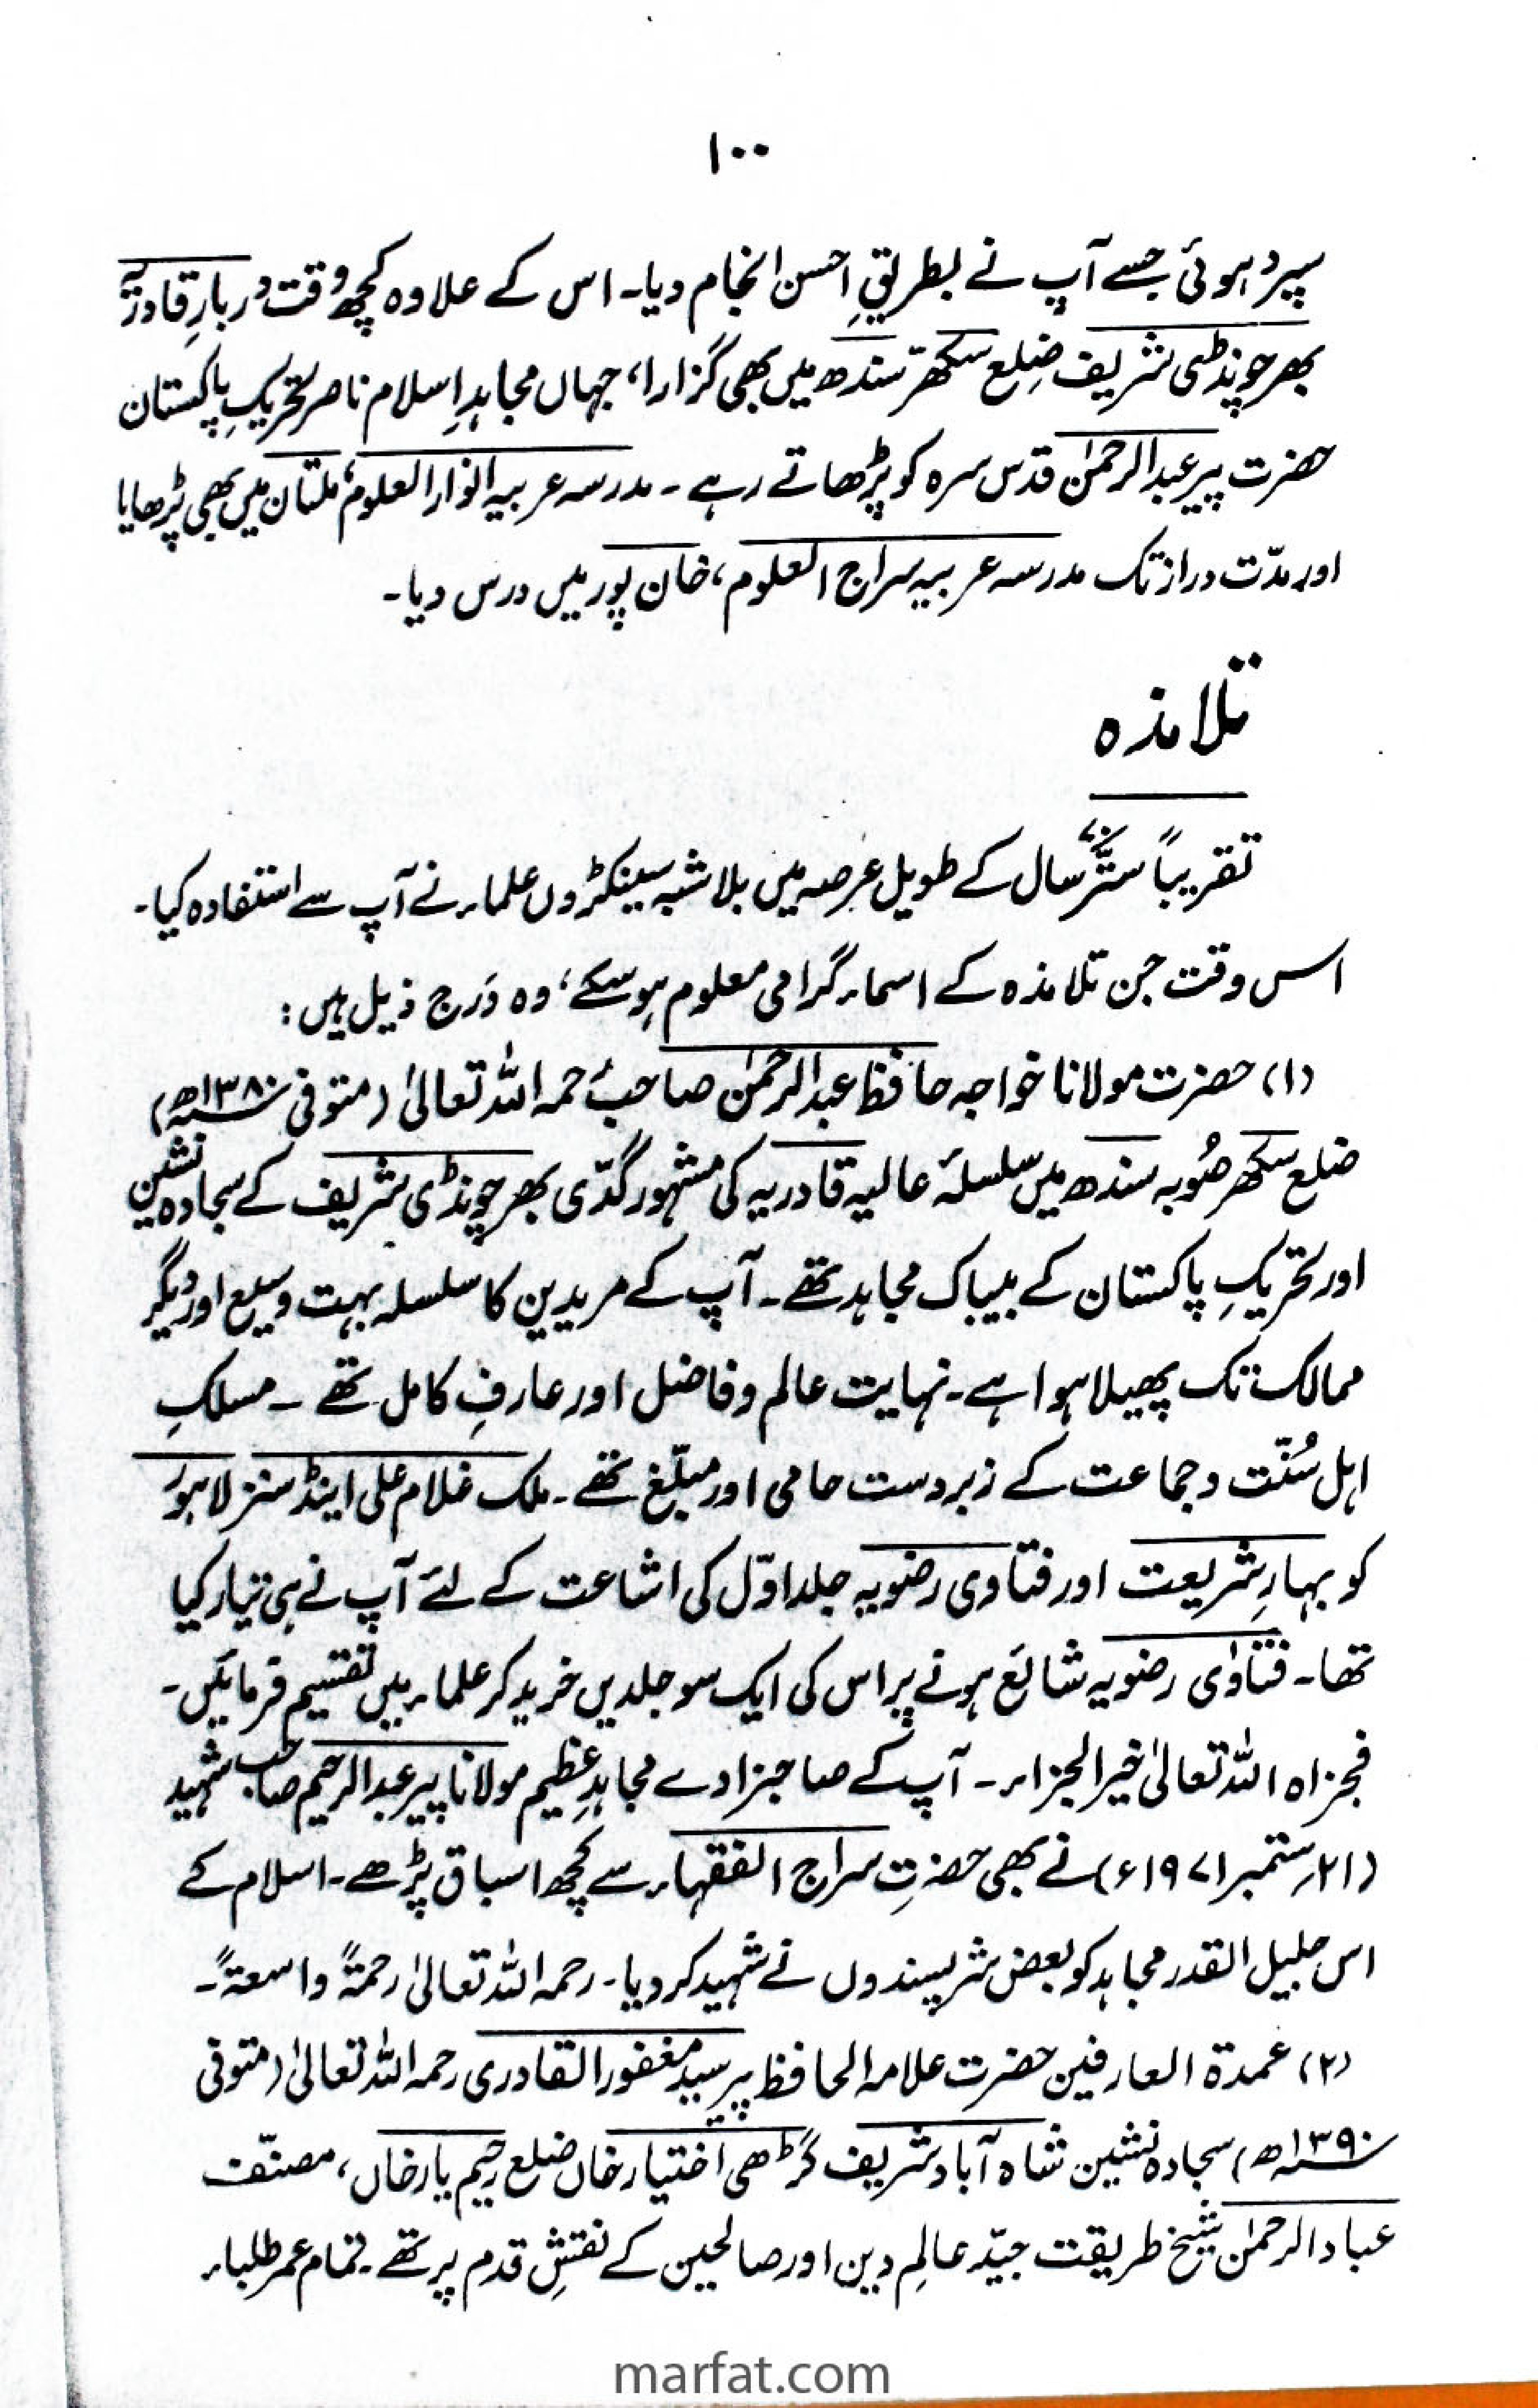 ۱۰۰
سپرد ہوئی جسے آپ نے بطریقِ احسن انجام دیا۔ اس کے علاوہ کچھ وقت دربارِ قادریہ
بھرچونڈی شریف ضِلع سکھرّ سندھ میں بھی گزارا، جہاں مجاہدِ اِسلام ناصرِ تحریکِ پاکستان
حضرت پیر عبدالرحمٰن قدس سرہ کو پڑھاتے رہے ۔ مدرسہ عربیہ انوار العلوم، ملتان میں بھی پڑھایا
اور مدّت دراز تک مدرسہ عربیہ سراج العلوم، خان پور میں درس دیا۔
تلامذہ
تقریباً ستّر۷۰ سال کے طویل عرصہ میں بلا شبہ سینکڑوں علماء نے آپ سے استفادہ کیا۔
اس وقت جن تلامذہ کے اسماء گرامی معلوم ہو سکے، وہ دَرج ذیل ہیں:
(۱) حضرت مولانا خواجہ حافظ عبدالرحمٰن صاحب رحمہ اللہ تعالیٰ (متوفی ۱۳۸۰ھ)
ضلع سکھر صُوبہ سندھ میں سلسلۂ عالیہ قادریہ کی مشہور گدّی بھرچونڈی شریف کے سجادہ نشین
اور تحریکِ پاکستان کے بیباک مجاہد تھے۔ آپ کے مریدین کا سلسلہ بہت وسیع اور دیگر
ممالک تک پھیلا ہوا ہے۔ نہایت عالم و فاضل اور عارفِ کامل تھے ۔ مسلکِ
اہل سُنّت و جماعت کے زبردست حامی اور مبلّغ تھے۔ ملک غلام علی اینڈ سنز لاہور
کو بہارِ شریعت اور فتاوی رضویہ جلد اوّل کی اشاعت کے لئے آپ نے ہی تیار کیا
تھا۔ فتاوٰی رضویہ شائع ہونے پر اس کی ایک سو جلدیں خرید کر علماء میں تقسیم فرمائیں۔
فجزاہ اللہ تعالیٰ خیر الجزاء۔ آپ کے صاحبزادے مجاہدِ عظیم مولانا پیر عبدالرحیم صاحب شہید
(۲۱؍ستمبر ۱۹۷۱ء) نے بھی حضرتِ سراج الفقہاء سے کچھ اسباق پڑھے۔ اسلام کے
اس جلیل القدر مجاہد کو بعض شرپسندوں نے شہید کر دیا۔ رحمہ اللہ تعالیٰ رحمۃً واسعۃً۔
(۲) عمدۃ العارفین حضرت علامہ الحافظ پیر سید مغفور القادری رحمہ اللہ تعالیٰ (متوفی
۱۳۹۰ھ) سجادہ نشین شاہ آباد شریف گڑھی اختیار خاں ضلع رحیم یار خاں، مصنّف
عباد الرحمٰن شیخ طریقت جیّد عالمِ دین اور صالحین کے نقشِ قدم پر تھے۔ تمام عمر طلباء
marfat.com